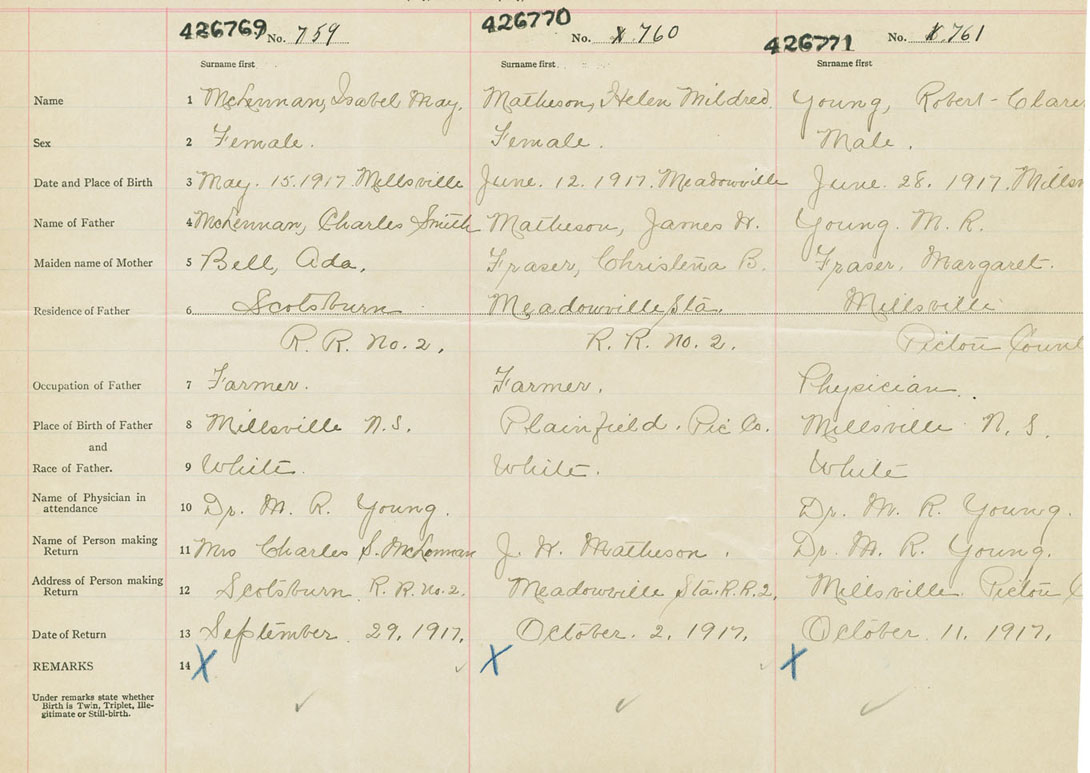 426769 No. 759 426770 No. X 760 426771 No. X 761
Surname first Surname first Surname first
Name 1 McLennan, Isabel May. Matheson, Helen Mildred. Young, Robert-
Sex 2 Female. Female. Male.
Date and Place of Birth 3 May. 15. 1917 Millsville June. 12. 1917. Meadowville June. 28. 1917.
Name of Father 4 McLennan, Charles Smith Matheson, James W. Young. M. R.
Maiden name of Mother 5 Bell, Ada. Fraser, Christeña B. Fraser, Margaret.
Residence of Father 6 Scotsburn Meadowville Sta. Millsville
R. R. No. 2. R. R. No. 2. Pictou
Occupation of Father 7 Farmer. Farmer. Physician.
Place of Birth of Father 8 Millsville N.S. Plainfield. Pic Co. Millsville N. S.
and
Race of Father. 9 White. White. White
Name of Physician in
attendance 10 Dr. M. R. Young. Dr. M. R. Young.
Name of Person making
Return 11 Mrs Charles S. McLennan J. W. Matheson. Dr. M. R. Young.
Address of Person making
Return 12 Scotsburn R. R. No. 2. Meadowville Sta. R. R. 2, Millsville Pictou
Date of Return 13 September 29, 1917, October. 2, 1917, October 11, 1917,
REMARKS 14 X X X
Under remarks state whether
Birth is Twin, Triplet, Ille-
gitimate or Still-birth.